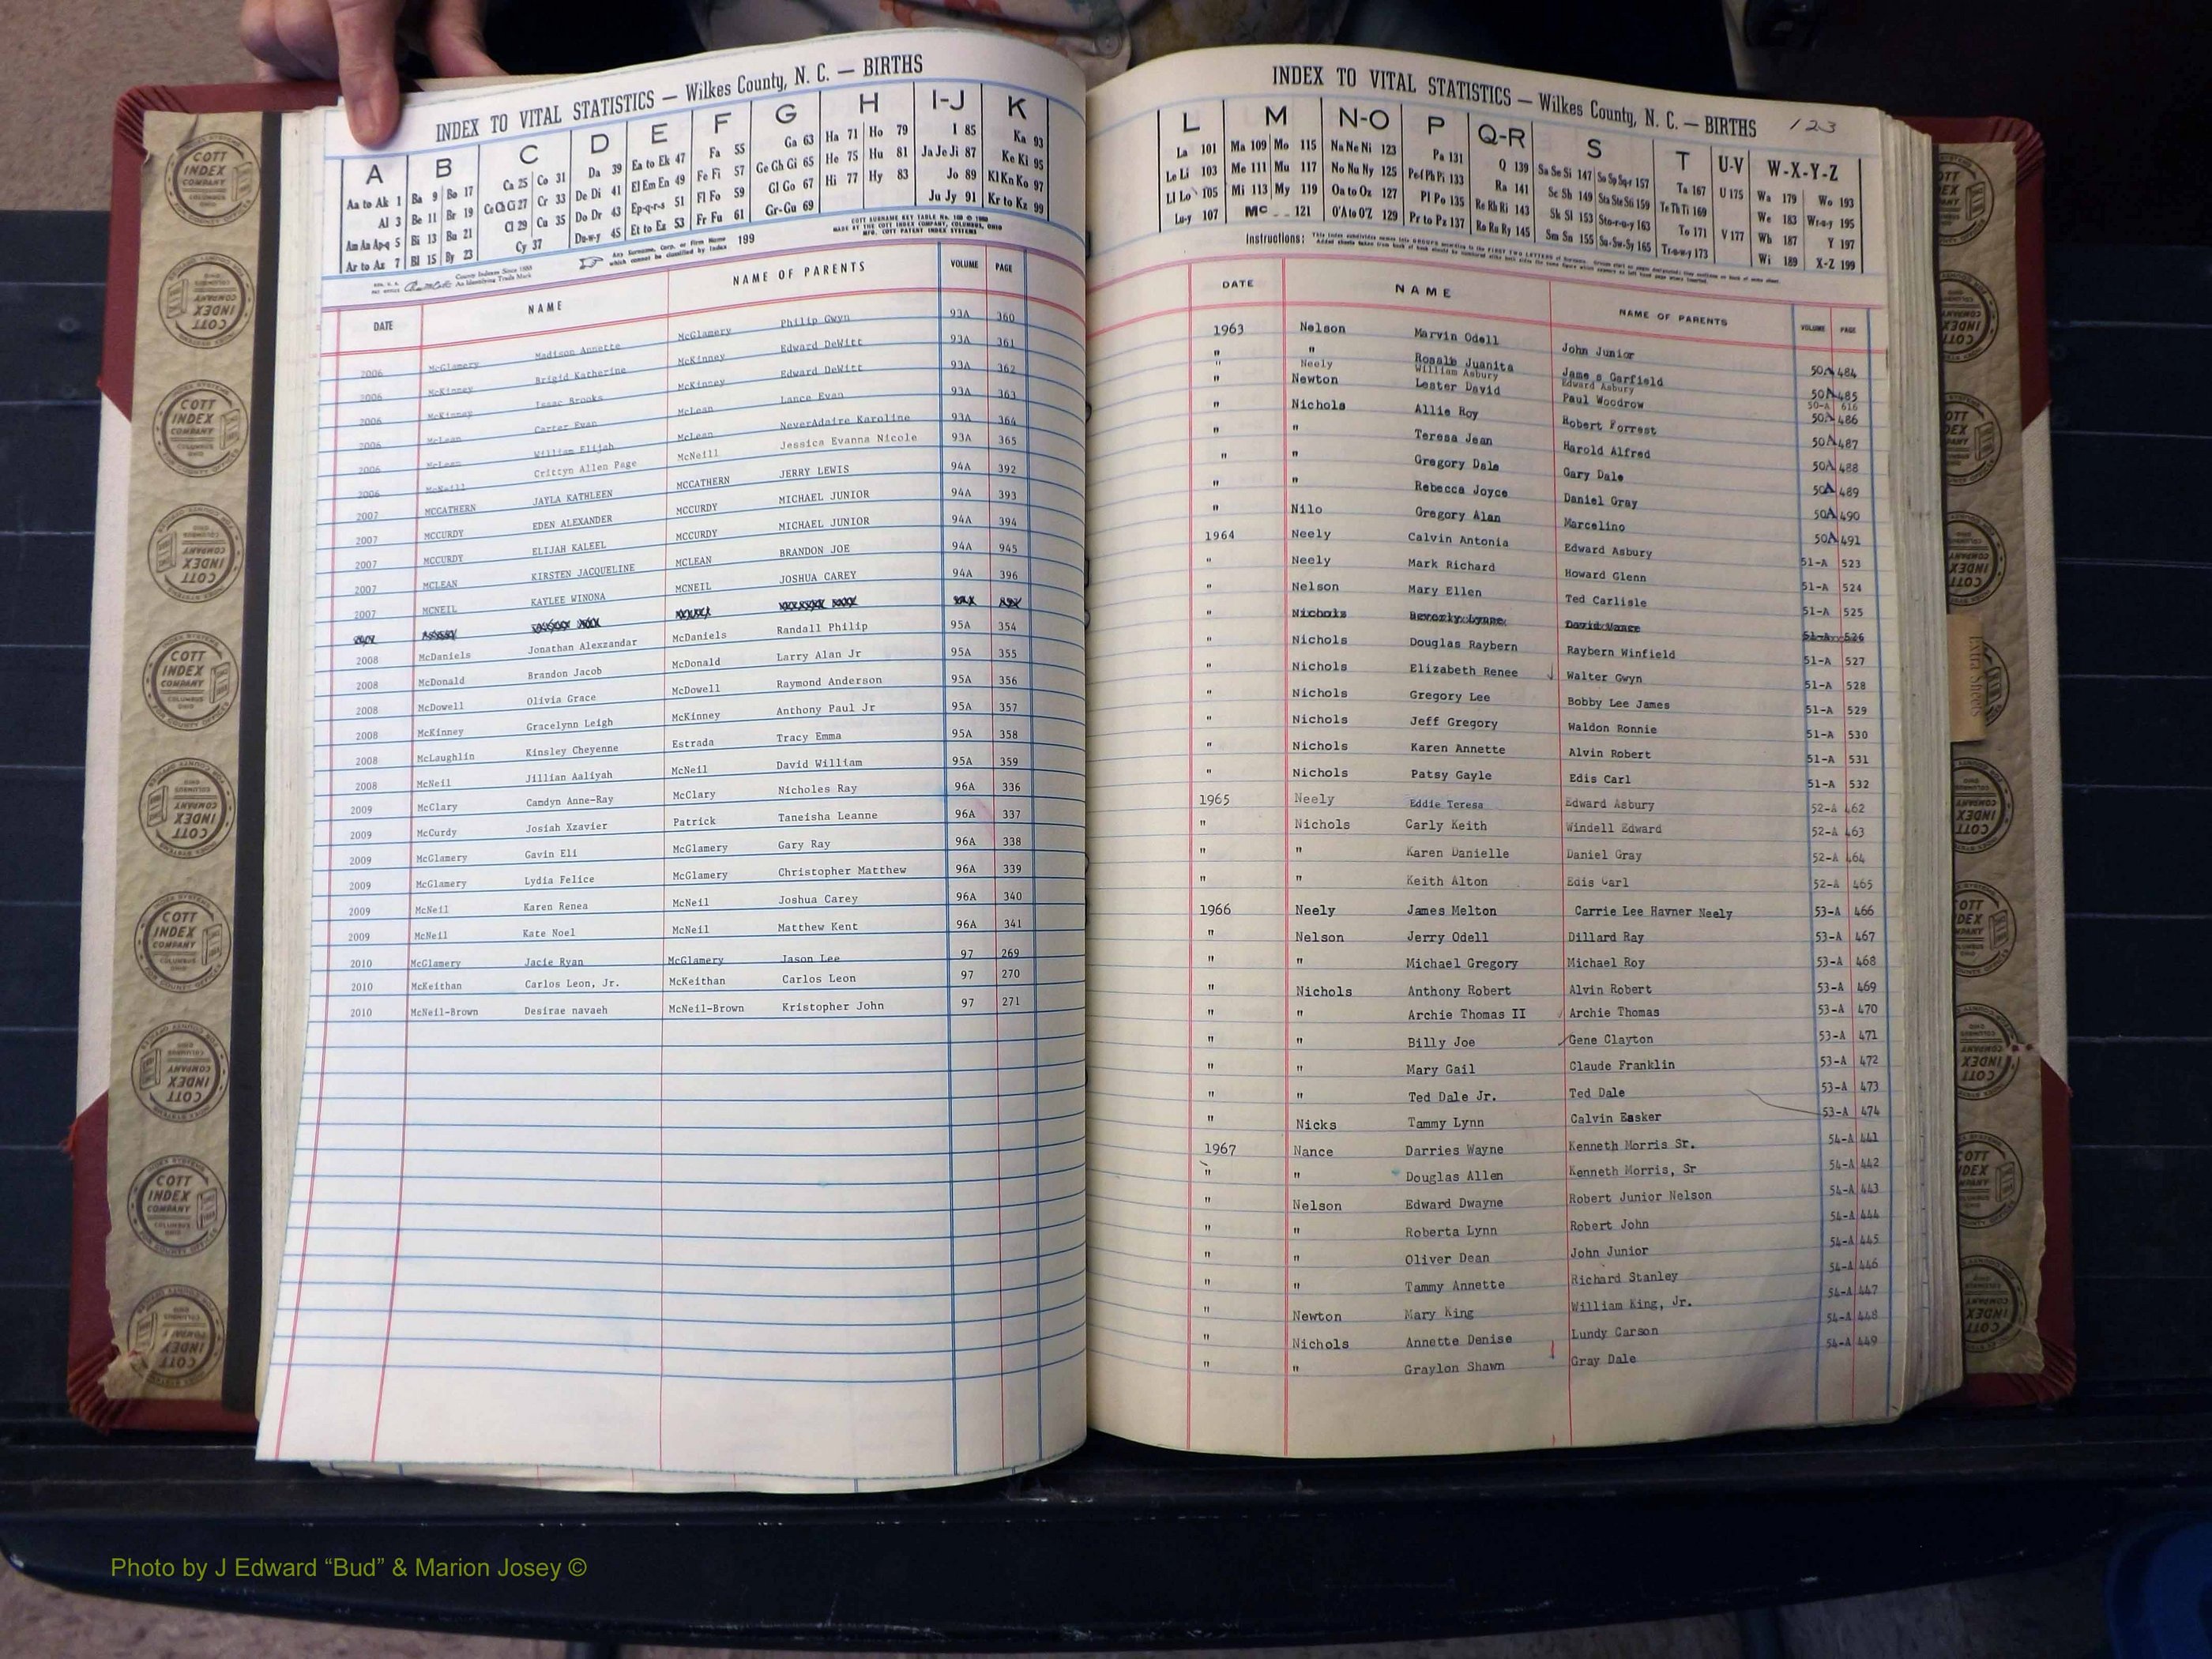 INDEX TO VITAL STATISTICS — Wilkes County, N. C. — BIRTHS
A B C D E F G H I-J K
Aa to Ak 1 Ba 9 Bo 17 Ca 25 Co 31 Da 39 Ea to Ek 47 Fa 55 Ga 63 Ha 71 Ho 79 I 85 Ka 93
Al 3 Be 11 Br 19 Ce Ch Ci 27 Cr 33 De Di 41 El Em En 49 Fe Fi 57 Ge Gh Gi 65 He 75 Hu 81 Ja Je Ji 87 Ke Ki 95
Am An Ap-q 5 Bi 13 Bu 21 Cl 29 Cu 35 Do Dr 43 Ep-q-r-s 51 Fl Fo 59 Gl Go 67 Hi 77 Hy 83 Jo 89 Kl Kn Ko 97
Ar to Az 7 Bl 15 By 23 Cy 37 Du-w-y 45 Et to Ez 53 Fr Fu 61 Gr-Gu 69 Ju Jy 91 Kr to Kz 99
Any Surname, Corp. or Firm Name which cannot be classified by Index 199
DATE NAME NAME OF PARENTS VOLUME PAGE
2006 McGlamery Madison Annette McGlamery Philip Gwyn 93A 360
2006 McKinney Brigid Katherine McKinney Edward DeWitt 93A 361
2006 McKinney Isaac Brooks McKinney Edward DeWitt 93A 362
2006 McLean Carter Evan McLean Lance Evan 93A 363
2006 McLean William Elijah McLean NeverAdaire Karoline 93A 364
2006 McNeill Crittyn Allen Page McNeill Jessica Evanna Nicole 93A 365
2007 MCCATHERN JAYLA KATHLEEN MCCATHERN JERRY LEWIS 94A 392
2007 MCCURDY EDEN ALEXANDER MCCURDY MICHAEL JUNIOR 94A 393
2007 MCCURDY ELIJAH KALEEL MCCURDY MICHAEL JUNIOR 94A 394
2007 MCLEAN KIRSTEN JACQUELINE MCLEAN BRANDON JOE 94A 945
2007 MCNEIL KAYLEE WINONA MCNEIL JOSHUA CAREY 94A 396
2008 McDaniels Jonathan Alexzandar McDaniels Randall Philip 95A 354
2008 McDonald Brandon Jacob McDonald Larry Alan Jr 95A 355
2008 McDowell Olivia Grace McDowell Raymond Anderson 95A 356
2008 McKinney Gracelynn Leigh McKinney Anthony Paul Jr 95A 357
2008 McLaughlin Kinsley Cheyenne Estrada Tracy Emma 95A 358
2008 McNeil Jillian Aaliyah McNeil David William 95A 359
2009 McClary Camdyn Anne-Ray McClary Nicholes Ray 96A 336
2009 McCurdy Josiah Xzavier Patrick Taneisha Leanne 96A 337
2009 McGlamery Gavin Eli McGlamery Gary Ray 96A 338
2009 McGlamery Lydia Felice McGlamery Christopher Matthew 96A 339
2009 McNeil Karen Renea McNeil Joshua Carey 96A 340
2009 McNeil Kate Noel McNeil Matthew Kent 96A 341
2010 McGlamery Jacie Ryan McGlamery Jason Lee 97 269
2010 McKeithan Carlos Leon, Jr. McKeithan Carlos Leon 97 270
2010 McNeil-Brown Desirae navaeh McNeil-Brown Kristopher John 97 271
INDEX TO VITAL STATISTICS — Wilkes County, N. C. — BIRTHS 123
L M N-O P Q-R S T U-V W-X-Y-Z
La 101 Ma 109 Mo 115 Na Ne Ni 123 Pa 131 Q 139 Sa Se Si 147 So Sp Sq-r 157 Ta 167 U 175 Wa 179 Wo 193
Le Li 103 Me 111 Mu 117 No Nu Ny 125 Pe-f Ph Pi 133 Ra 141 Sc Sh 149 Sta Ste Sti 159 Te Th Ti 169 We 183 Wr-u-y 195
Ll Lo 105 Mi 113 My 119 Oa to Oz 127 Pl Po 135 Re Rh Ri 143 Sk Sl 153 Sto-r-u-y 163 To 171 V 177 Wh 187 Y 197
Lu-y 107 Mc 121 O'A to O'Z 129 Pr to Pz 137 Ro Ru Ry 145 Sm Sn 155 Su-Sw-Sy 165 Tr-u-w-y 173 Wi 189 X-Z 199
Instructions:
DATE NAME NAME OF PARENTS VOLUME PAGE
1963 Nelson Marvin Odell John Junior 50A 484
" " Rosalie Juanita James Garfield 50A 485
" Neely William Asbury Edward Asbury 50-A 616
" Newton Lester David Paul Woodrow 50A 486
" Nichols Allie Roy Robert Forrest 50A 487
" " Teresa Jean Harold Alfred 50A 488
" " Gregory Dale Gary Dale 50A 489
" " Rebecca Joyce Daniel Gray 50A 490
" Nilo Gregory Alan Marcelino 50A 491
1964 Neely Calvin Antonia Edward Asbury 51-A 523
" Neely Mark Richard Howard Glenn 51-A 524
" Nelson Mary Ellen Ted Carlisle 51-A 525
" Nichols Beverly Lynne David Vance 51-A 526
" Nichols Douglas Raybern Raybern Winfield 51-A 527
" Nichols Elizabeth Renee Walter Gwyn 51-A 528
" Nichols Gregory Lee Bobby Lee James 51-A 529
" Nichols Jeff Gregory Waldon Ronnie 51-A 530
" Nichols Karen Annette Alvin Robert 51-A 531
" Nichols Patsy Gayle Edis Carl 51-A 532
1965 Neely Eddie Teresa Edward Asbury 52-A 462
" Nichols Carly Keith Windell Edward 52-A 463
" " Karen Danielle Daniel Gray 52-A 464
" " Keith Alton Edis Carl 52-A 465
1966 Neely James Melton Carrie Lee Havner Neely 53-A 466
" Nelson Jerry Odell Dillard Ray 53-A 467
" " Michael Gregory Michael Roy 53-A 468
" Nichols Anthony Robert Alvin Robert 53-A 469
" " Archie Thomas II Archie Thomas 53-A 470
" " Billy Joe Gene Clayton 53-A 471
" " Mary Gail Claude Franklin 53-A 472
" " Ted Dale Jr. Ted Dale 53-A 473
" Nicks Tammy Lynn Calvin Easker 53-A 474
1967 Nance Darries Wayne Kenneth Morris Sr. 54-A 441
" " Douglas Allen Kenneth Morris, Sr 54-A 442
" Nelson Edward Dwayne Robert Junior Nelson 54-A 443
" " Roberta Lynn Robert John 54-A 444
" " Oliver Dean John Junior 54-A 445
" " Tammy Annette Richard Stanley 54-A 446
" Newton Mary King William King, Jr. 54-A 447
" Nichols Annette Denise Lundy Carson 54-A 448
" " Graylon Shawn Gray Dale 54-A 449
Extra Sheets
COTT INDEX COMPANY COLUMBUS OHIO
Photo by J Edward “Bud” & Marion Josey ©